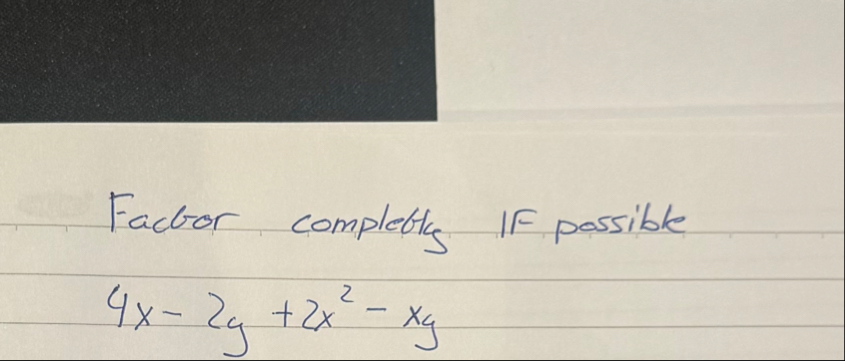 Factor completly IF possible
4x - 2y + 2x² - xy